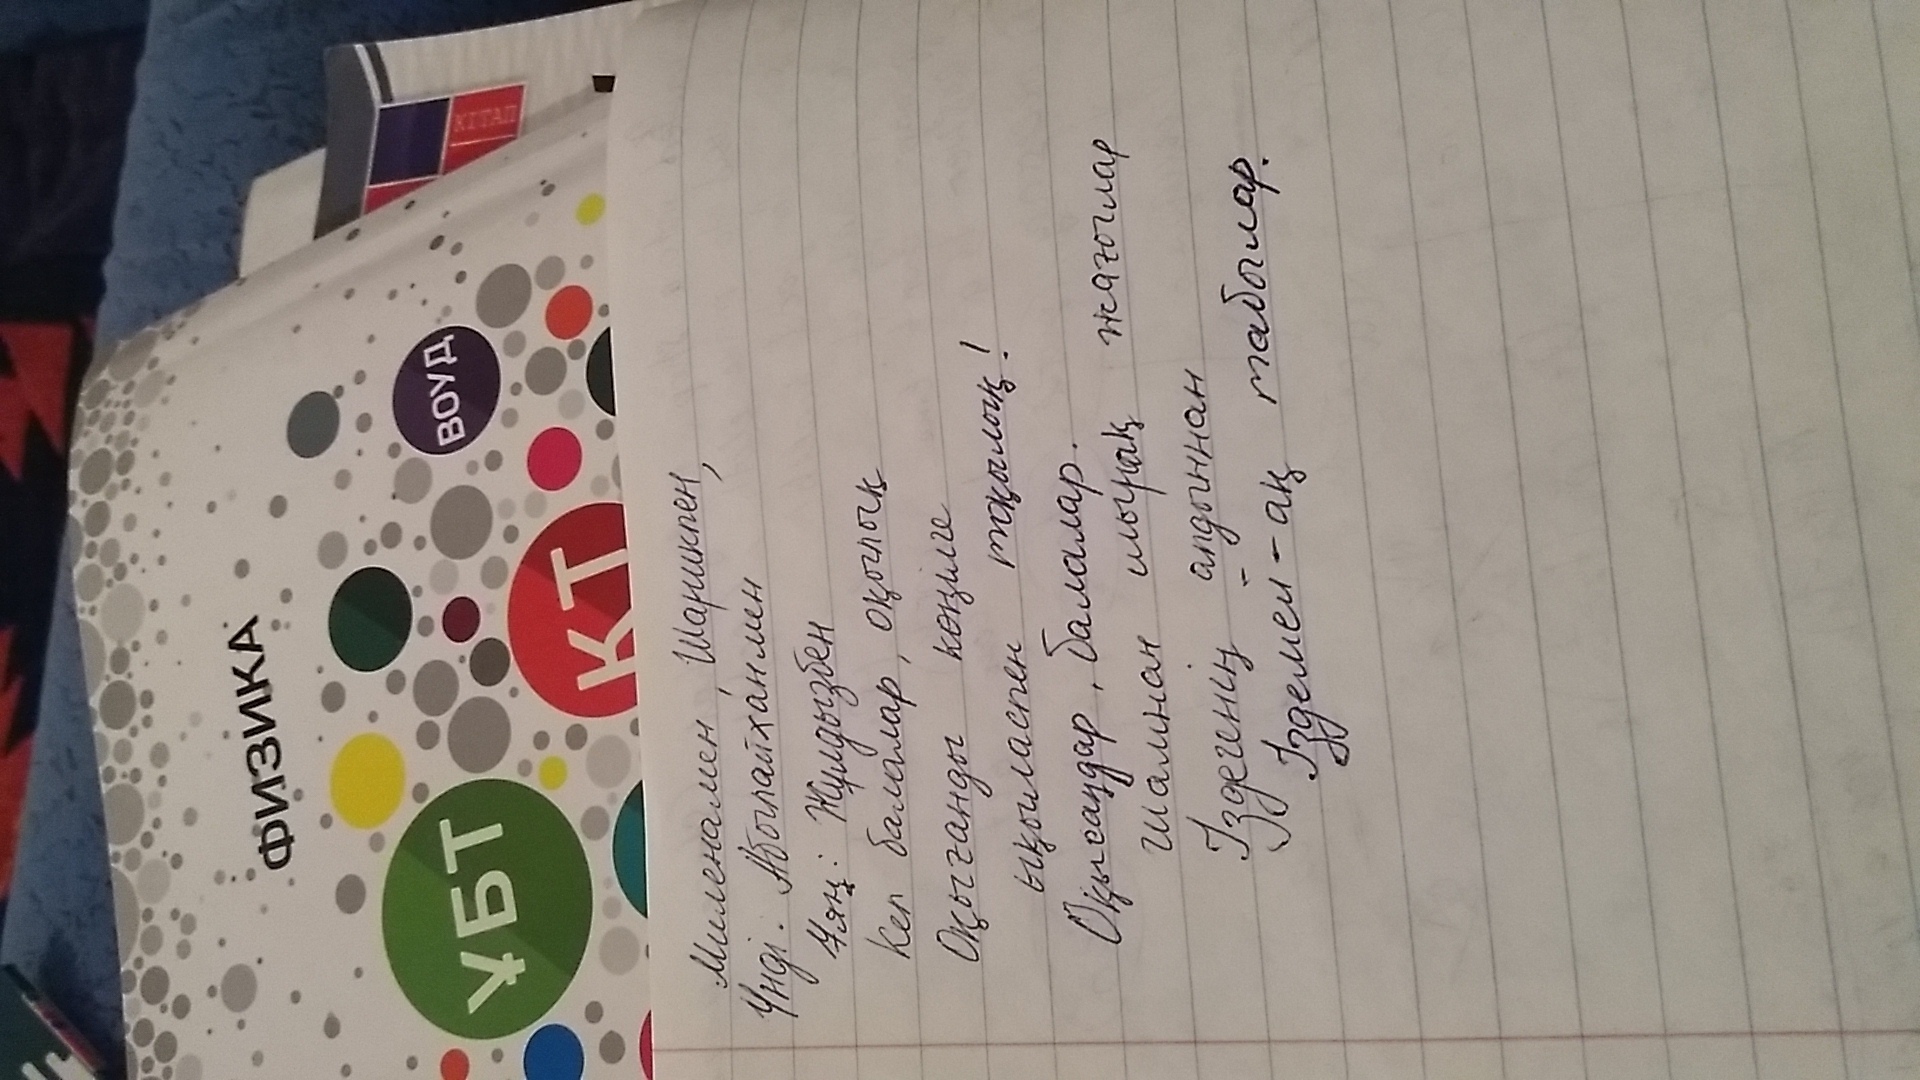 КІТАП
ФИЗИКА
ВОУД
ҰБТ
КТ
Миленамен, Шарикпен,
Үнді: Абылайханмен
Ұяң: Жұлдызбен
Кел балалар, оқылық
Оқығанды көңілге
ықыласпен тоқылық!
Оқысаңдар, балалар.
Шамнан шырақ жағылар
Іздегенің алдыннан
Іздемей-ақ табылар.